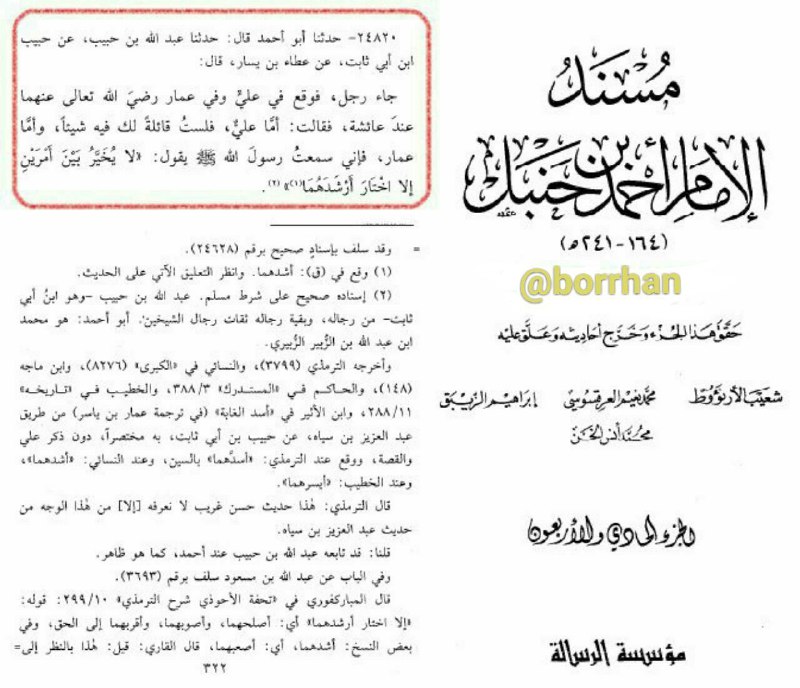 مُسْنَدُ
الإِمَامِ أَحْمَدَ بْنِ حَنْبَلٍ
(١٦٤-٢٤١ه)
@borrhan
حَقَّقَ هَذَا الجُزْءَ وَخَرَّجَ أحَادِيثَه وَعَلَّقَ عَلَيْه
شعيب الأرنؤوط محمد نعيم العرقسوسي إبراهيم الزيبق
محمد أنس الخن
الجزء الحادي والأربعون
مؤسسة الرسالة
٢٤٨٢٠- حدثنا أبو أحمد قال: حدثنا عبد الله بن حبيب، عن حبيب
ابن أبي ثابت، عن عطاء بن يسار، قال:
جاء رجل، فوقع في عليٍّ وفي عمار رضيَ الله تعالى عنهما
عندَ عائشة، فقالت: أمَّا عليٌّ، فلستُ قائلةً لك فيه شيئاً، وأمَّا
عمار، فإني سمعتُ رسولَ الله ﷺ يقول: «لا يُخَيَّرُ بَيْنَ أَمْرَيْنِ
إلا اخْتَارَ أَرْشَدَهُمَا(١)» (٢).
= وقد سلف بإسنادٍ صحيح برقم (٢٤٦٢٨).
(١) وقع في (ق): أشدهما. وانظر التعليق الآتي على الحديث.
(٢) إسناده صحيح على شرط مسلم. عبد الله بن حبيب -وهو ابنُ أبي
ثابت- من رجاله، وبقية رجاله ثقات رجال الشيخين. أبو أحمد: هو محمد
ابن عبد الله بن الزُّبير الزُّبيري.
وأخرجه الترمذي (٣٧٩٩)، والنسائي في «الكبرى» (٨٢٧٦)، وابن ماجه
(١٤٨)، والحاكم في «المستدرك» ٣٨٨/٣، والخطيب في «تاريخه»
٢٨٨/١١، وابن الأثير في «أسد الغابة» (في ترجمة عمار بن ياسر) من طريق
عبد العزيز بن سياه، عن حبيب بن أبي ثابت، به مختصراً، دون ذكر علي
والقصة، ووقع عند الترمذي: «أسدَّهما» بالسين، وعند النسائي: «أشدهما»،
وعند الخطيب: «أيسرهما».
قال الترمذي: هٰذا حديث حسن غريب لا نعرفه [إلا] من هٰذا الوجه من
حديث عبد العزيز بن سياه.
قلنا: قد تابعه عبد الله بن حبيب عند أحمد، كما هو ظاهر.
وفي الباب عن عبد الله بن مسعود سلف برقم (٣٦٩٣).
قال المباركفوري في «تحفة الأحوذي شرح الترمذي» ٢٩٩/١٠: قوله:
«إلا اختار أرشدهما» أي: أصلحهما، وأصوبهما، وأقربهما إلى الحق، وفي
بعض النسخ: أشدهما، أي: أصعبهما، قال القاري: قيل: هٰذا بالنظر إلى=
٣٢٢